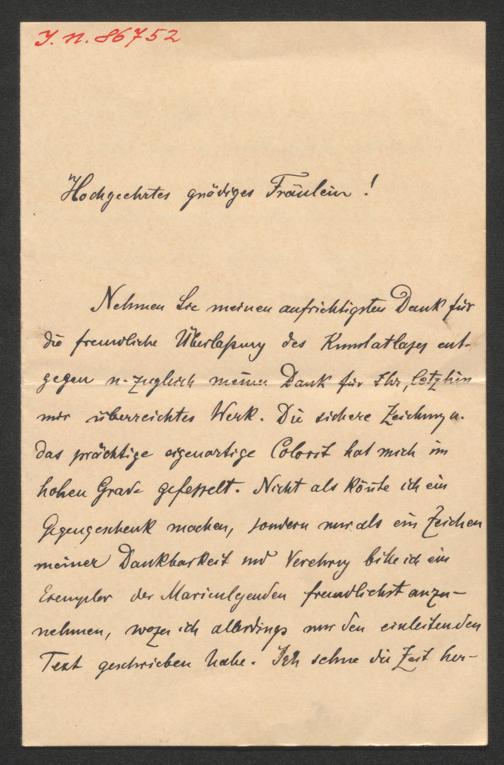 J. N. 86752
Hochgeehrtes gnädiges Fräulein!
Nehmen Sie meinen aufrichtigsten Dank für
die freundliche Überlaßung des Kunstatlases ent-
gegen u. zugleich meinen Dank für Ihr, letzthin
mir überreichtes Werk. Die sichere Zeichnung u.
das prächtige eigenartige Colorit hat mich im
hohen Grade gefesselt. Nicht als könte ich ein
Gegengeschenk machen, sondern nur als ein Zeichen
meiner Dankbarkeit und Verehrung bitte ich ein
Exemplar der Marienlegenden freundlichst anzu-
nehmen, wozu ich allerdings nur den einleitenden
Text geschrieben habe. Ich sehne die Zeit her-